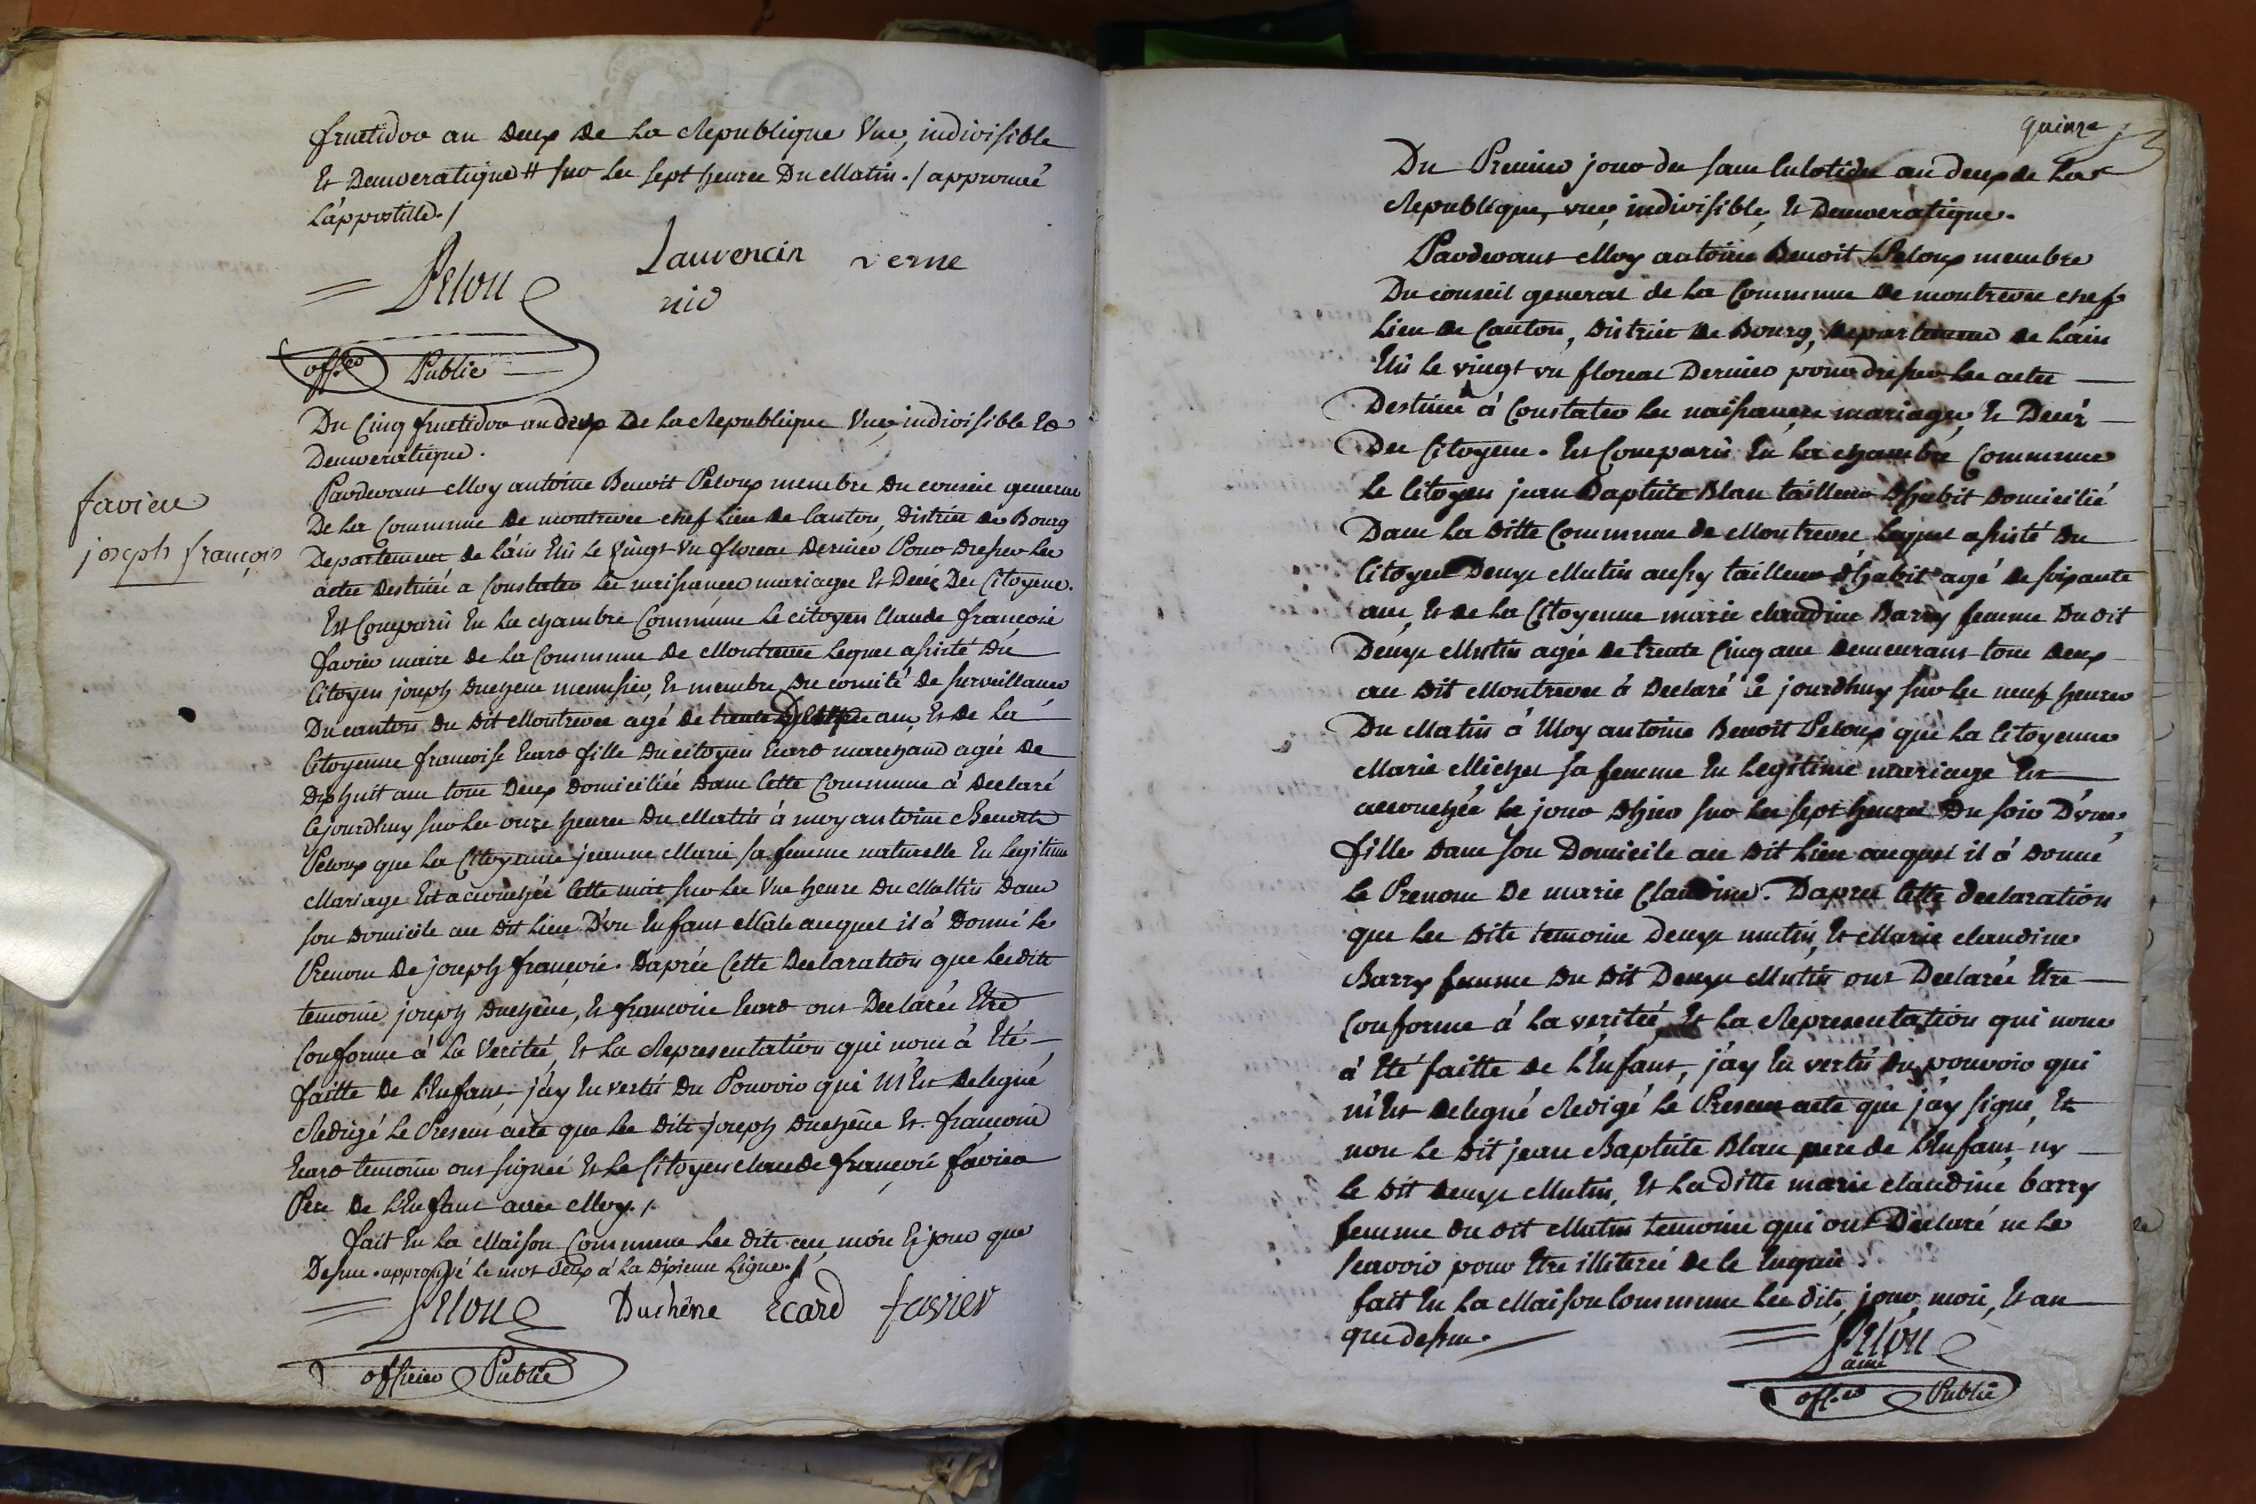 fructidor an deux de la Republique Une, indivisible
Et Democratique # sur les sept heures Du Matin ./ approuvé
L'appostille ./
Pelou
Laurencin verne
nid
off.er Public
Du Cinq fructidor an deux De la Republique Une, indivisible Et
Democratique.
favier
joseph françois
Pardevant Moy antoine Benoit Peloux membre Du conseil general
De La Commune de montrevel chef Lieu de Canton, District de Bourg
Departement de L'ain Elû le Vingt Un floreal dernier Pour dresser les
actes destinés a Constater les naissances mariages Et Décéz Des Citoyens.
Est Comparû En La chambre Commune Le citoyen Claude françois
favier maire de La Commune de Montrevel Lequel assisté Du
Citoyen joseph Duchene menuisier, Et membre Du comité de surveillance
Du canton du dit Montrevel agé de trente ans, Et de La
Citoyenne francoise Ecard fille du citoyen Ecard marchand agée de
dixhuit ans tous Deux domiciliés dans Cette Commune à Declaré
Cejourdhuy sur les onze heures Du Matin à moy antoine Benoit
Peloux que La Citoyenne jeanne Marie sa femme naturelle En Legitime
Mariage Est accouchée Cette nuit sur les Une heure Du Mattin dans
son domicile au dit Lieu D'un Enfant Mâle auquel il à Donné le
Prenom De joseph françois. Daprès Cette Declaration que les dits
temoins joseph duchêne, Et francoise Ecard ont Declarés Etre
Conforme à La Verité, Et La Representation qui nous à Eté
faitte de L'Enfant j'ay En vertû du Pouvoir qui M'Est delegué
Redigé Le Present acte que les dits joseph duchêne Et francoise
Ecard temoins ont signés Et Le Citoyen claude françois favier
Pere de L'Enfant avec Moy ./
fait En La Maison Commune Les dits an, mois Et jour que
Dessus . approuvé le mot deux à La dixieme Ligne ./
Pelou Duchêne Ecard favier
officier Public
quinze
Du Premier jour des sans culotides an deux de La
Republique, une, indivisible, Et Democratique.
Pardevant Moy antoine Benoit Peloux membre
Du conseil general de La Commune de montrevel chef
Lieu de Canton, district de Bourg, departement de L'ain
Elû le vingt un floreal Dernier pour dresser Les actes
Destinés à Constater les naissances mariages, Et Décéz
Des Citoyens. Est Comparû En La chambre Commune
Le Citoyen jean Baptiste Blan tailleur d'habit domicilié
Dans La ditte Commune de Montrevel Lequel assisté Du
Citoyen Denys Mutin aussy tailleur d'habit agé de soixante
ans, Et de La Citoyenne marie claudine Barry femme Du dit
Denys Mutin agée de trente Cinq ans demeurant tous deux
au dit Montrevel à Declaré Ce jourdhuy sur les neuf heures
Du Matin à Moy antoine Benoit Peloux que La Citoyenne
Marie Michel sa femme En Legitime mariage Est
accouchée Le jour d'hier sur les sept heures Du soir D'une
fille dans son Domicile au dit Lieu auquel il à donné
Le Prenom De marie Claudine. Daprès Cette declaration
que les dits temoins Denys mutin, Et Marie claudine
Barry femme du dit Denys Mutin ont Declarés Etre
Conforme à La verité, Et La Representation qui nous
à Eté faitte de L'Enfant, j'ay En vertû du pouvoir qui
m'Est delegué Redigé Le Present acte que j'ay signé, Et
non Le dit jean Baptiste Blan pere de L'Enfant, ny
Le dit denys Mutin, Et La ditte marie claudine barry
femme du dit Mutin temoins qui ont Declaré ne Le
scavoir pour Etre illiterés de le Enquis.
fait En La Maison Commune Les dits, jour, mois, Et an
que dessus.
Pelou
ainé
off.er Public